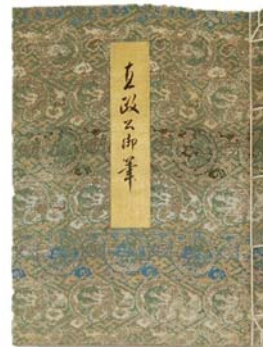 直政公御筆